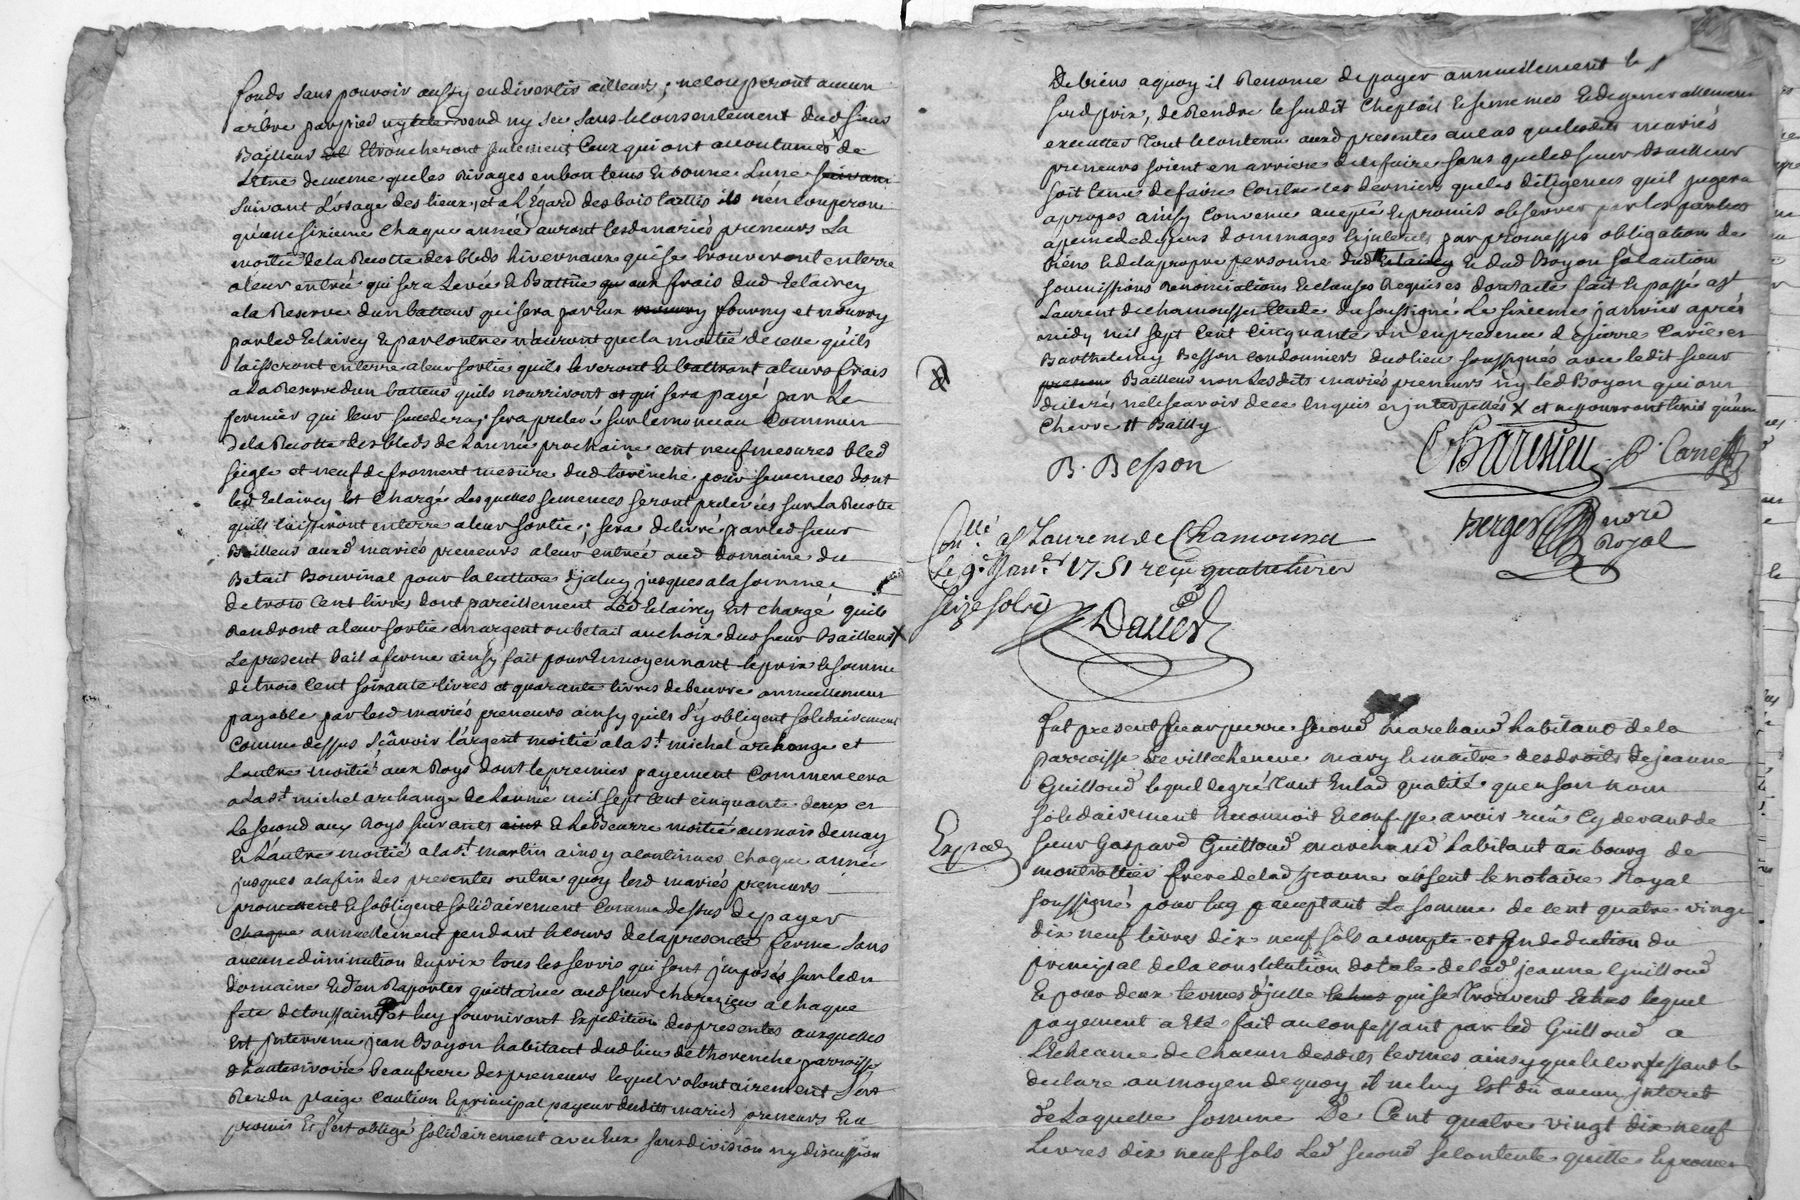 fonds sans pouvoir aussy en divertir ailleurs ; ne couperont aucun
arbre par pied ny vend ny sec sans le consentement dud sieur
Bailleur Et Etroncheront seulement ceux qui ont accoutumés de
L'etre de meme que les Rivages en bon tems et bonne Lune suivant
suivant Lusage des lieux, et a L'Egard des bois taillis ils n'en couperont
qu'une sixieme chaque année auront lesd mariés preneurs La
moitié de la Recolte des bleds hivernaux qui se trouveront en terre
a leur entrée qui sera Levée et Battue qu aux frais dud Eclairey
a la Reserve d'un batteur qui sera par Eux nourry fourny et nourry
par led Eclairey Et par contre n'auront que la moitié de celle qu'ils
laisseront en terre a leur sortie qu'ils leveront Et battront a leurs frais
a La Reserve d'un batteur quils nourriront et qui sera payé par Le
fermier qui leur succedera ; sera prelevé sur le monceau commun
de la Recolte des bleds de L'année prochaine cent neuf mesures bled
seigle et neuf de froment mesure dud thorenche pour semences dont
led Eclairey est chargé Lesquelles semences seront prelevées sur La Recolte
quils laisseront en terre a leur sortie ; sera delivré par led sieur
Bailleur auxd mariés preneurs a leur entrée aud domaine du
Betail Bouvinal pour la culture d'jceluy jusques a la somme
de trois cent livres dont pareillement Led Eclairey est chargé quils
Rendront a leur sortie en argent ou betail au choix dud sieur Bailleur X
Le present bail a ferme ainsy fait pour Et moyennant le prix et somme
de trois cent soixante livres et quarante livres de beurre annuellement
payable par lesd mariés preneurs ainsy quils s'y obligent solidairement
comme dessus sçâvoir l'argent moitié a la st michel archange et
Lautre moitié aux Roys dont le premier payement commencera
a La st michel archange de L'année mil sept cent cinquante deux et
Le second aux Roys suivants ainsi Et Le Beurre moitié au mois de may
Et L'autre moitié a la st martin ainsy a continuer chaque année
jusques a la fin des presentes outre quoy lesd mariés preneurs
promettent Et s'obligent solidairement comme dessus de payer
chaque annuellement pendant le cours de la presente ferme sans
aucune diminution du prix tous les servis qui sont jmposés sur led
Domaine Et d'en Raporter quittance aud sieur charezieu a chaque
fete de toussaint et luy fourniront Expedition des presentes auxquelles
est jntervenu jean Boyon habitant dud lieu de thorenche parroisse
d'hauterivoire beaufrere des preneurs lequel volontairement s'est
Rendu plaige caution et principal payeur desdits mariés preneurs Et a
promis Et s'est obligé solidairement avec Eux sans division ny discussion
De biens a quoy il Renonce de payer annuellement le
susd prix, de Rendre le susdit cheptail Et semences Et de generallement
executter Tout le contenu auxd presentes au cas que lesdits mariés
preneurs soient en arriere de le faire sans que led sieur Bailleur
soit tenu de faire contre ces derniers que les diligences quil jugera
a propos ainsy convenu accepté Et promis observer par les parties
a peine de depens dommages Et jnterets par promesses obligations de
biens Et de la propre personne dud Eclairey Et dud Boyon sa caution
soumissions Renonciations Et clauses Requises dont acte fait Et passé a st
Laurent de chamousset Etude du soussigné Le sixieme janvier après
midy mil sept cent cinquante un en presence de pierre Carré et
Barthelemy Besson cordonniers dud lieu soussignés avec ledit sieur
preneur Bailleur non Lesdits mariés preneurs ny led Boyon qui ont
declarés ne le scavoir de ce Enquis et jnterpellés X et ne pourront tenir qu'une
Chevre # Bailly
B. Besson
Charesieu
P. Carré
Berger nore
Royal
Conllé a st Laurent de Chamousset
Le 9e Janer 1751 reçu quatre livres
seize sols
Dauier
fut present sieur pierre second marchand habitant de la
parroisse de villecheneve mary et maitre des droits de jeanne
Guilloud lequel de gré Tant En lad qualité que en son nom
solidairement Reconnoit Et confesse avoir reçu cy devant de
Expiée
sieur Gaspard Guilloud marchand habitant au bourg de
montrottier frere de lad jeanne absent le notaire Royal
soussigné pour luy acceptant La somme de cent quatre vingt
dix neuf livres dix neuf sols a compte et En deduction du
principal de la constitution dotale de lad jeanne Guilloud
Et pour deux termes d'jcelle echus qui se Trouvent Echus lequel
payement a Eté fait au confessant par led Guilloud a
L'echeance de chacun desdits termes ainsy que le confessant le
declare au moyen de quoy il ne luy Est dû aucun jnteret
de Laquelle somme De Cent quatre vingt dix neuf
Livres dix neuf sols Led second se contente quitte Et promet